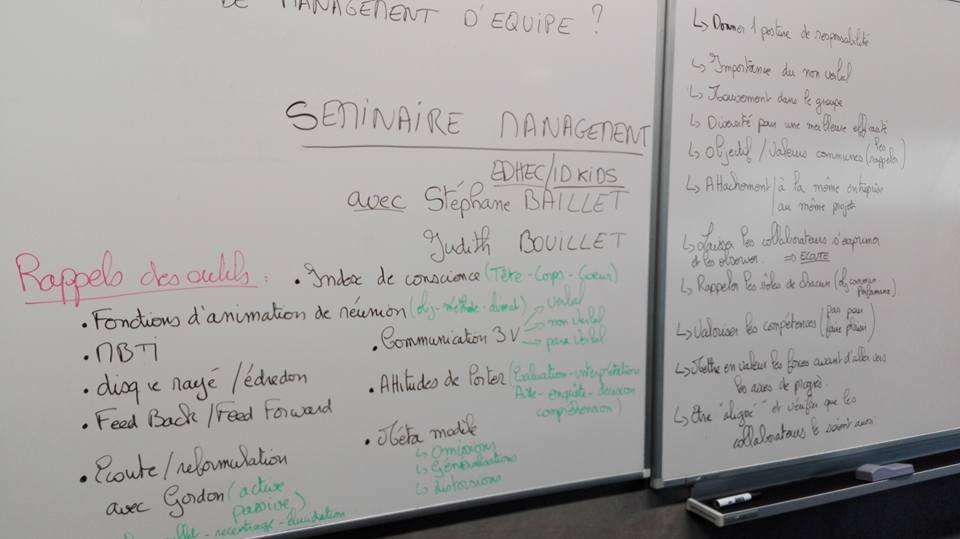 DE MANAGEMENT D'EQUIPE ?
SEMINAIRE MANAGEMENT
EDHEC/IDKIDS
avec Stéphane BAILLET
Judith BOUILLET
Rappels des outils :
• Index de conscience (Tête - Corps - Coeur)
• Fonctions d'animation de réunion (obj - méthode - climat)
• MBTI
• disque rayé / édredon
• Feed Back / Feed Forward
• Ecoute / reformulation
avec Gordon (active
passive)
- recentrage - élucidation
• Communication 3V
→ verbal
→ non verbal
→ para verbal
• Attitudes de Porter (Evaluation - interprétation
Aide - enquête - decision
compréhension)
• Méta modèle
↳ omissions
↳ Généralisations
↳ distorsions
↳ Donner 1 posture de responsabilité
↳ Importance du non verbal
↳ Mouvement dans le groupe
↳ Diversité pour une meilleure efficacité
↳ Objectif / Valeurs communes (les rappeler)
↳ Attachement / à la même entreprise
au même projet
↳ Laisser les collaborateurs s'exprimer
et les observer. ⇒ ECOUTE
↳ Rappeler les rôles de chacun (obj commun
performance)
↳ Valoriser les compétences (pas pour
faire plaisir)
↳ Mettre en valeur les forces avant d'aller vers
les axes de progrès.
↳ Etre "aligné" et vérifier que les
collaborateurs le soient aussi